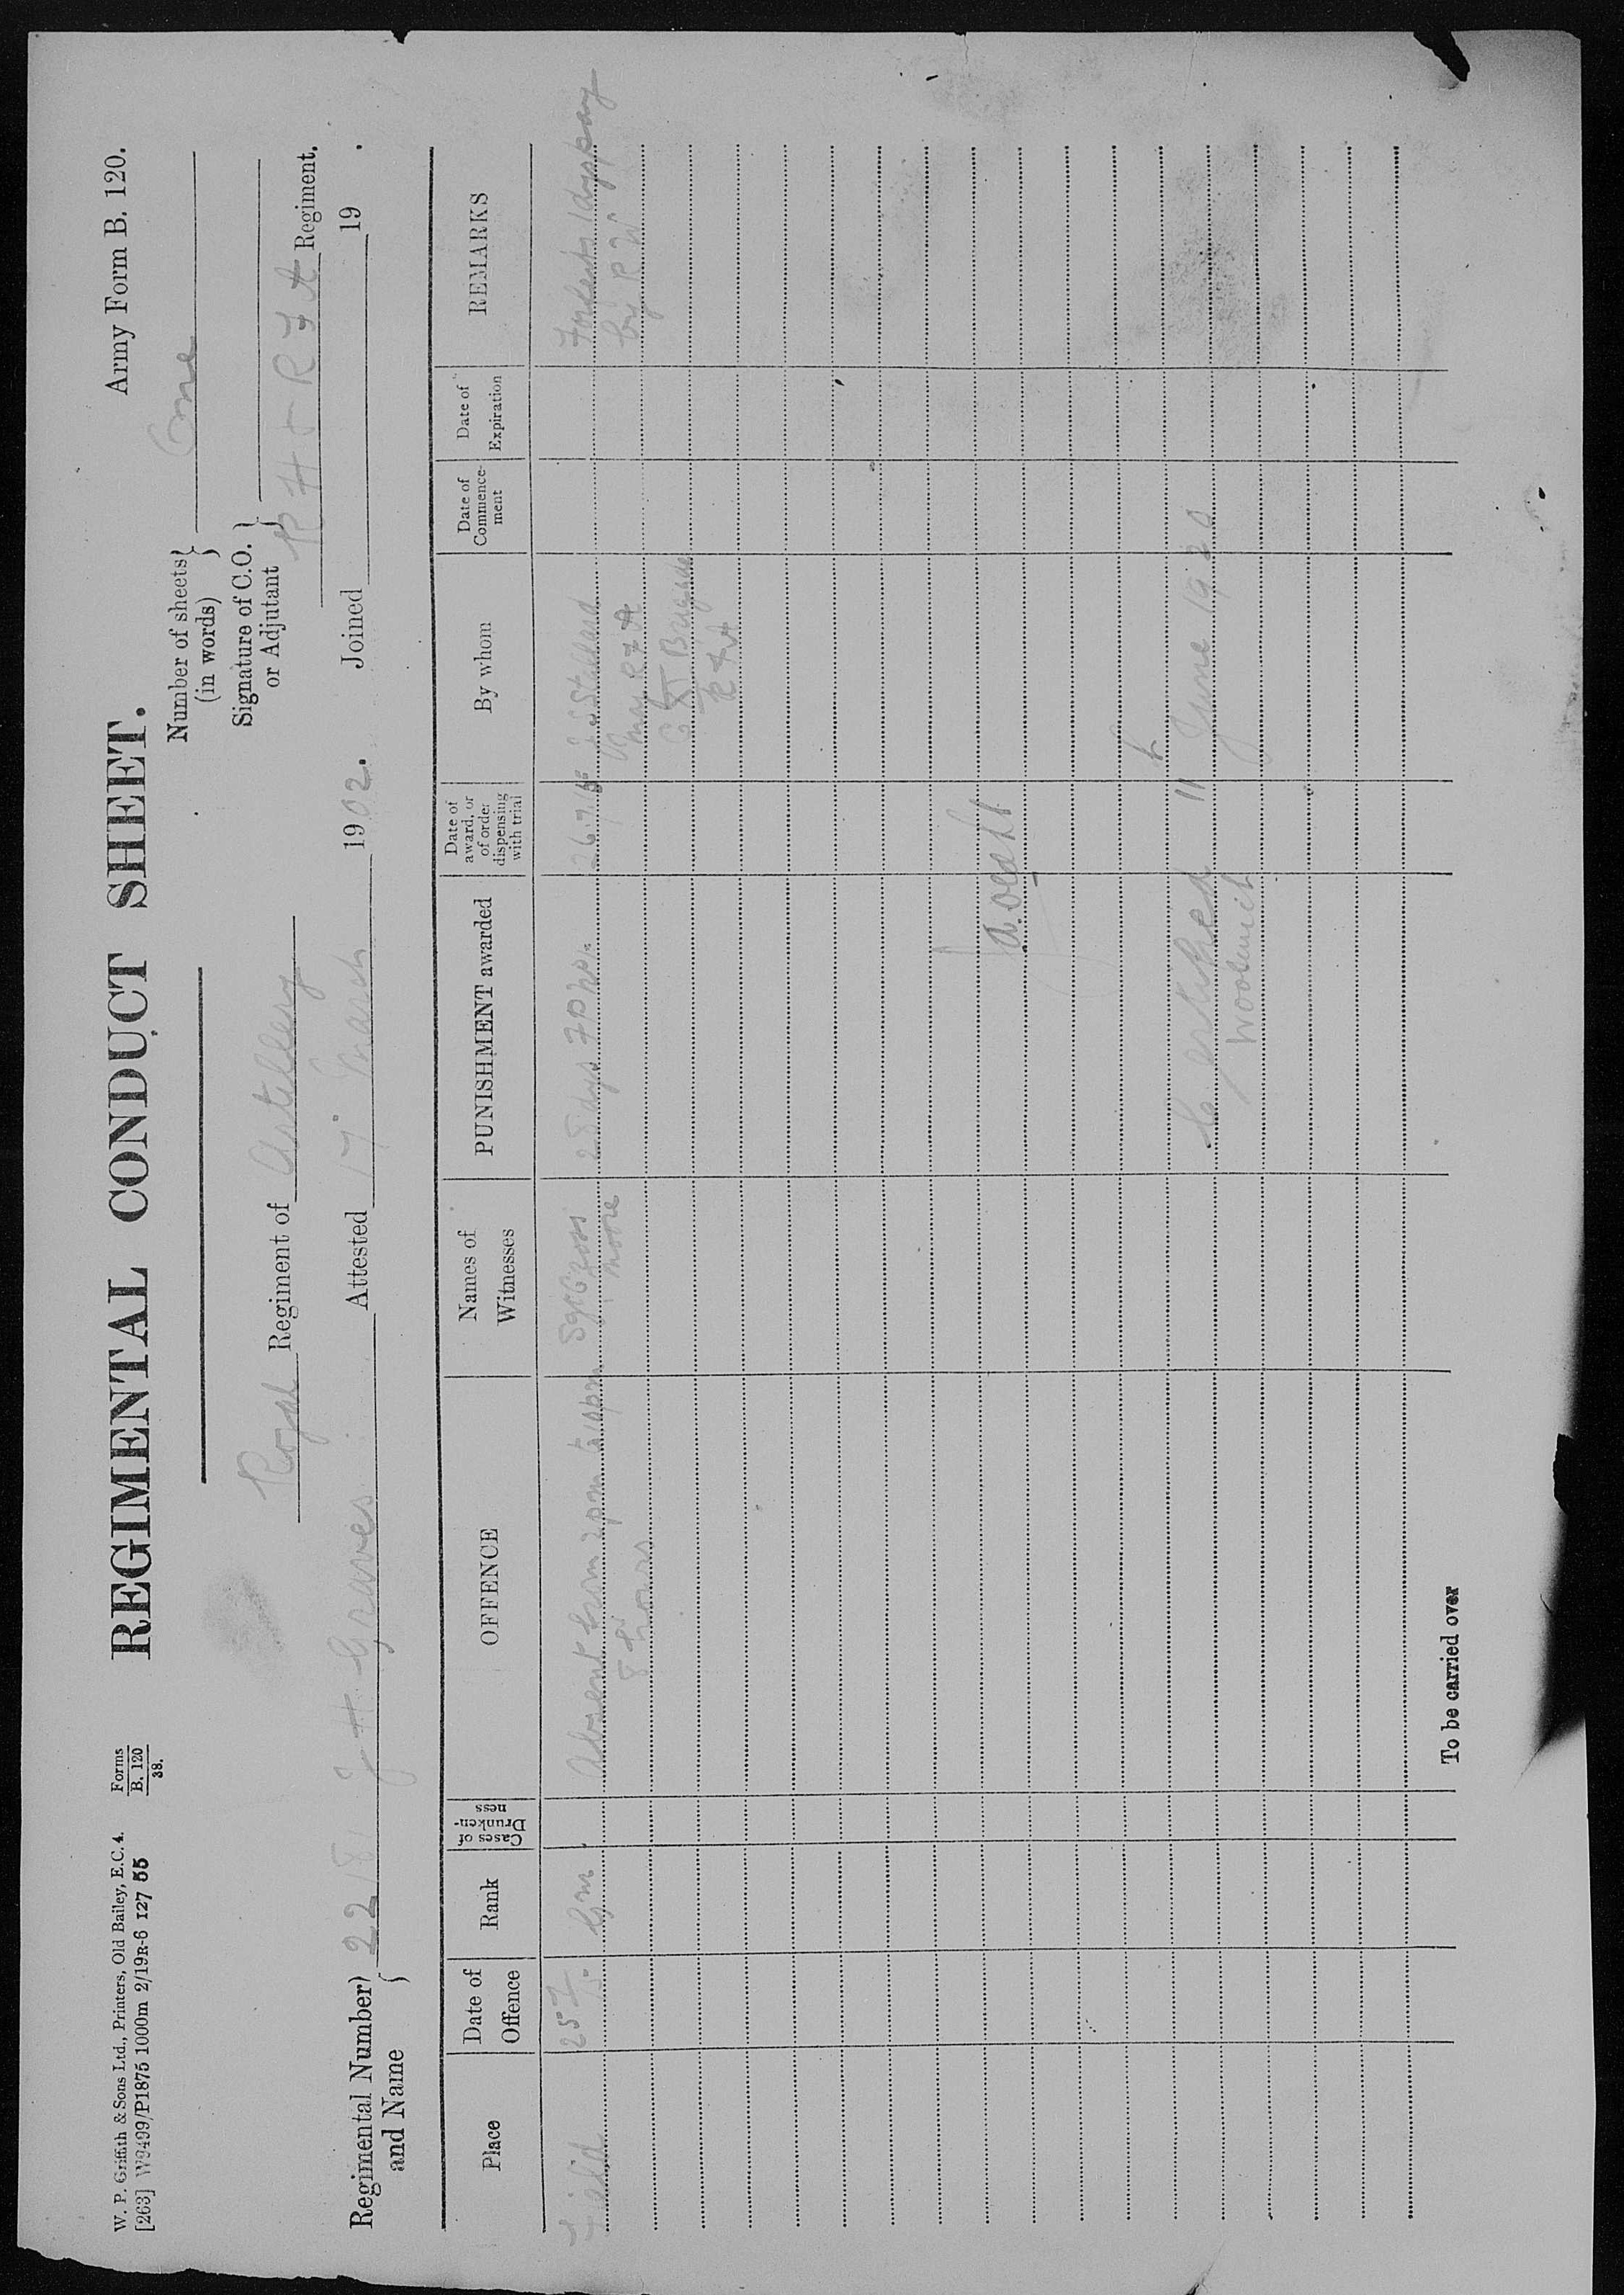 W. P. Griffith & Sons Ltd., Printers, Old Bailey, E.C. 4.
[263] W9499/P1875 1000m 2/19R-6 127 55
Forms
B. 120
38.
Army Form B. 120.
REGIMENTAL CONDUCT SHEET.
Number of sheets (in words) } One
Signature of C.O. or Adjutant }
Royal Regiment of Artillery
R H & R F A Regiment.
Regimental Number and Name } 2218 J H Graves Attested 17 March 1902. Joined 19 .
Place
Date of Offence
Rank
Cases of Drunken-ness
OFFENCE
Names of Witnesses
PUNISHMENT awarded
Date of award, or of order dispensing with trial
By whom
Date of Commence-ment
Date of Expiration
REMARKS
Field 25 7 15. Gnr. Absent from 2pm to 10pm Sgt Cross 28 days F P No. 26.7.15 Forfeits 1 days pay
8 hours Moore Maj R F A by R W
Brigade
R F A
Certified 11 June 1920
Woolwich
To be carried over